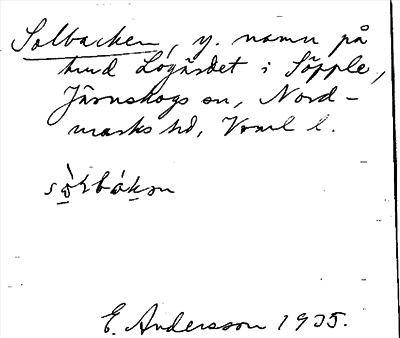 Solbacken, y. namn på
hmd Logärdet i Söpple,
Järnskogs sn, Nord-
marks hd, Vrml l.
E. Andersson 1935.